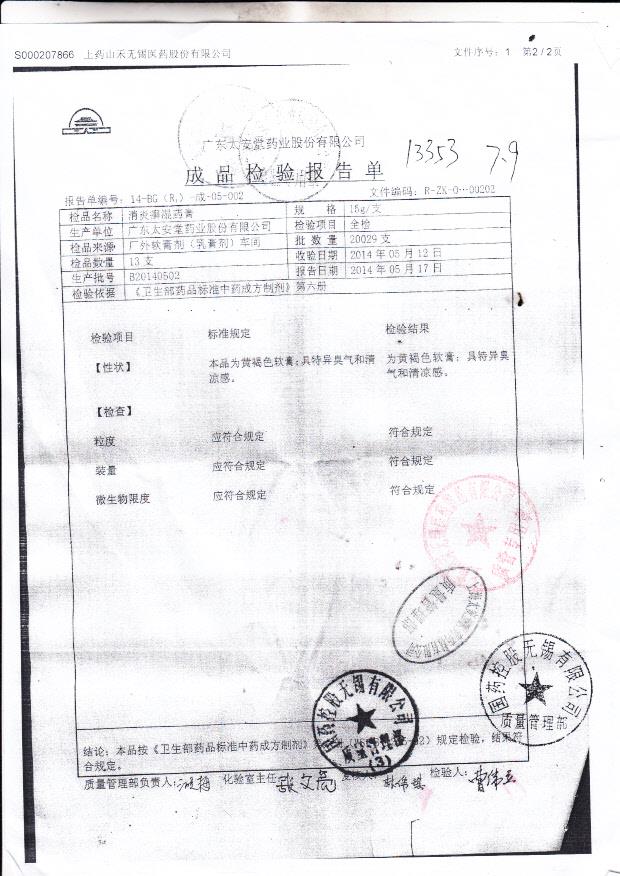 S000207866 上药山禾无锡医药股份有限公司 文件序号: 1 第2/2页
广东太安堂药业股份有限公司
成品检验报告单
13353 7.9
报告单编号: 14-BG(R,)-成-05-002 文件编码: R-ZK-0 00202
检品名称 消炎癣湿药膏 规格 15g/支
生产单位 广东太安堂药业股份有限公司 检验项目 全检
检品来源 厂外软膏剂(乳膏剂)车间 批数量 20029支
检品数量 13支 收验日期 2014年05月12日
生产批号 B20140502 报告日期 2014年05月17日
检验依据 《卫生部药品标准中药成方制剂》第六册
检验项目 标准规定 检验结果
【性状】 本品为黄褐色软膏;具特异臭气和清 为黄褐色软膏;具特异臭
凉感。 气和清凉感。
【检查】
粒度 应符合规定 符合规定
装量 应符合规定 符合规定
微生物限度 应符合规定 符合规定
质量管理部
国药控股无锡有限公司
质量管理部
国药控股无锡有限公司
质量管理部
(3)
结论: 本品按《卫生部药品标准中药成方制剂》 2)规定检验,结果符
合规定。
质量管理部负责人: 化验室主任 张文亮 检验人: 曹伟